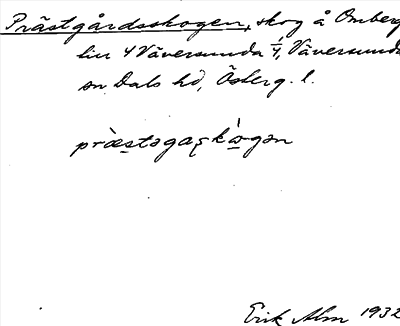 Prästgårdsskogen, skog å Omberg
4 Väversunda 1/4, Väversunda
sn Dals hd, Österg. l.
præ̀stəgaşkɷ̀gən
Erik Alm 1932